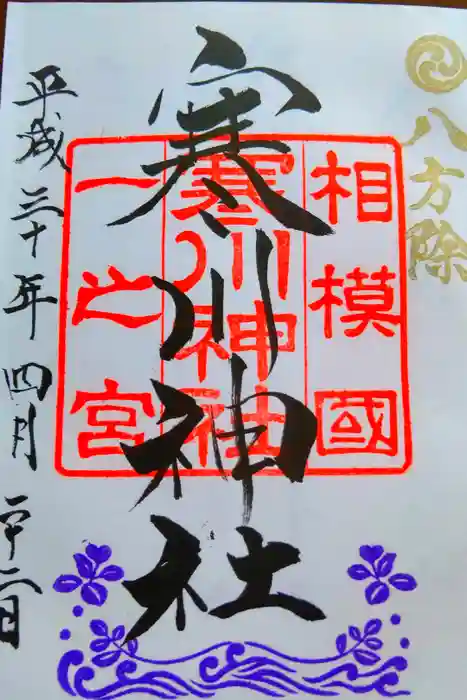 八方除
相模國
寒川神社
一之宮
寒川神社
平成三十年四月二十二日